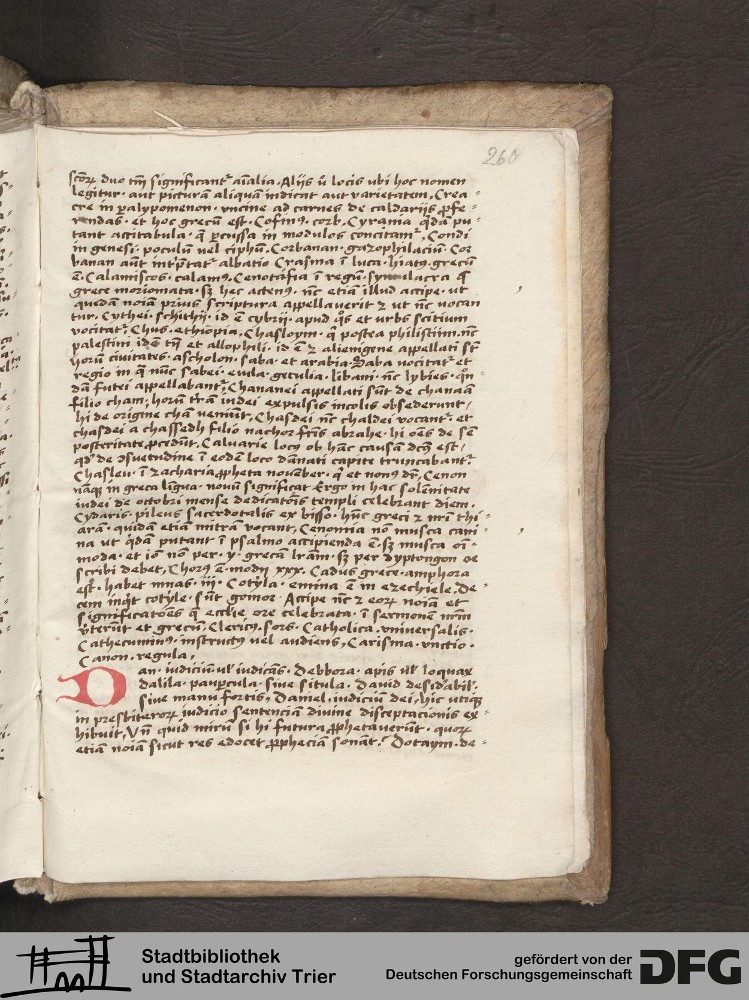 260
scōꝝ duo tm̄ significantᷣ aīalia. Aliis ū locis ubi hoc nomen
legitur. aut picturā aliquā indicat aut varietatem, Crea-
cre in ꝑalypomenon. vncine ad carnes de caldariis ꝓfe-
rendas. et hoc grecū est. Cofinꝰ. corb. Cyrania qͣdā pu-
tant acitabula. q̄ ꝑcussa in modulos concitantᷣ, Condi
in genesi. poculū vel ciphū. Corbanan. gazophilaciū. Cor
banan aūt intˀp̄tatᷣ albatio Crasma ī luca. hiatꝰ. grecū
ē. Calamiscos. calamꝰ. Cenotafia ī regū. symulacra q̄
grece moriomata. sꝫ hec actenꝰ. nc̄ etiā illud accipe. ut
quedā noīa priꝰ scriptura appellauerit ⁊ ut nc̄ vocan
tur. Cythei. schithii. id ē cybrii. apud q̄s et urbs scitium
vocitatᷣ. Chus. ethiopia. Chasloym. q̄ postea philistiim. nc̄
palestini idē tn̄ et allophili. id ē ⁊ alienigene appellati st̄
horū ciuitates. ascholon. saba. et arabia. Saba vocitatᷣ et
regio in q̄ nūc sabei. euila. getulia. libani. nc̄ lybies. qͦn-
dā futei appellabantᷣ, Chananei appellati sūt de chanaā
filio cham, horū tr̄am iudei expulsis incolis obsederunt,
hi de origine chā veniūt. Chasdei nc̄ chaldei vocantᷣ. et
chasdei a chassedh filio nachor fr̄is abrahe. hi oēs de sē
posteritate ꝓcidūt. Caluarie locꝰ ob hāc causā dc̄s est.
qd̓ de ɔsuetudine ī eodē loco dānati capite truncabantᷣ.
Chasleu. ī zacharia ꝓpheta nouēber. q̄ et nonꝰ dr̄, Cenon
nāqꝫ in greca lingua. nouū significat Ergo in hac solēnitate
iudei de octobri mense dedicatōis templi celebrant diem.
Cydaris. pileus sacerdotalis ex bisso. hūc greci ⁊ nr̄i thi-
arā. quidā etiā mitrā vocant, Cenomia nō musca cani-
na ut qͥdā putant ī psalmo accipienda ē. sꝫ musca oī-
moda. et iō nō per. y. grecā lr̄am. sꝫ per dyptongon oe
scribi debet, Chorꝰ ē. modii xxx. Cadus grece. amphora
est. habet mnas. iii. Cotyla. emina ē in ezechiele. De-
cem inqͥt cotyle. sūt gomor. Accipe nc̄ ⁊ eoꝝ noīa et
significatōes q̄ ecclie ore celebrata. ī sermonē nr̄m
vˀterūt et grecū. Clericꝰ. sors. Catholica. vniuersalis.
Cathecuminꝰ. instructꝰ vel audiens, Carisma. vnctio.
Canon. regula.
Dan. iudiciū. ul̓ iudicās. Debbora. apis ul̓ loquax
dalila. pauꝑcula. siue situla. Dauid desid̓abil̓.
siue manu fortis, Daniel. iudiciū dei, hic utiqꝫ
in presbiteroꝝ iudicio sentenciā diuine disceptacionis ex-
hibuit, Vn̄ quid mirū si hi futura ꝓphetauerūt. quoꝝ
etiā noīa sicut res edocet ꝓpheciā sonātᷣ. Dotaym. de-
Stadtbibliothek
und Stadtarchiv Trier
gefördert von der
Deutschen Forschungsgemeinschaft
DFG